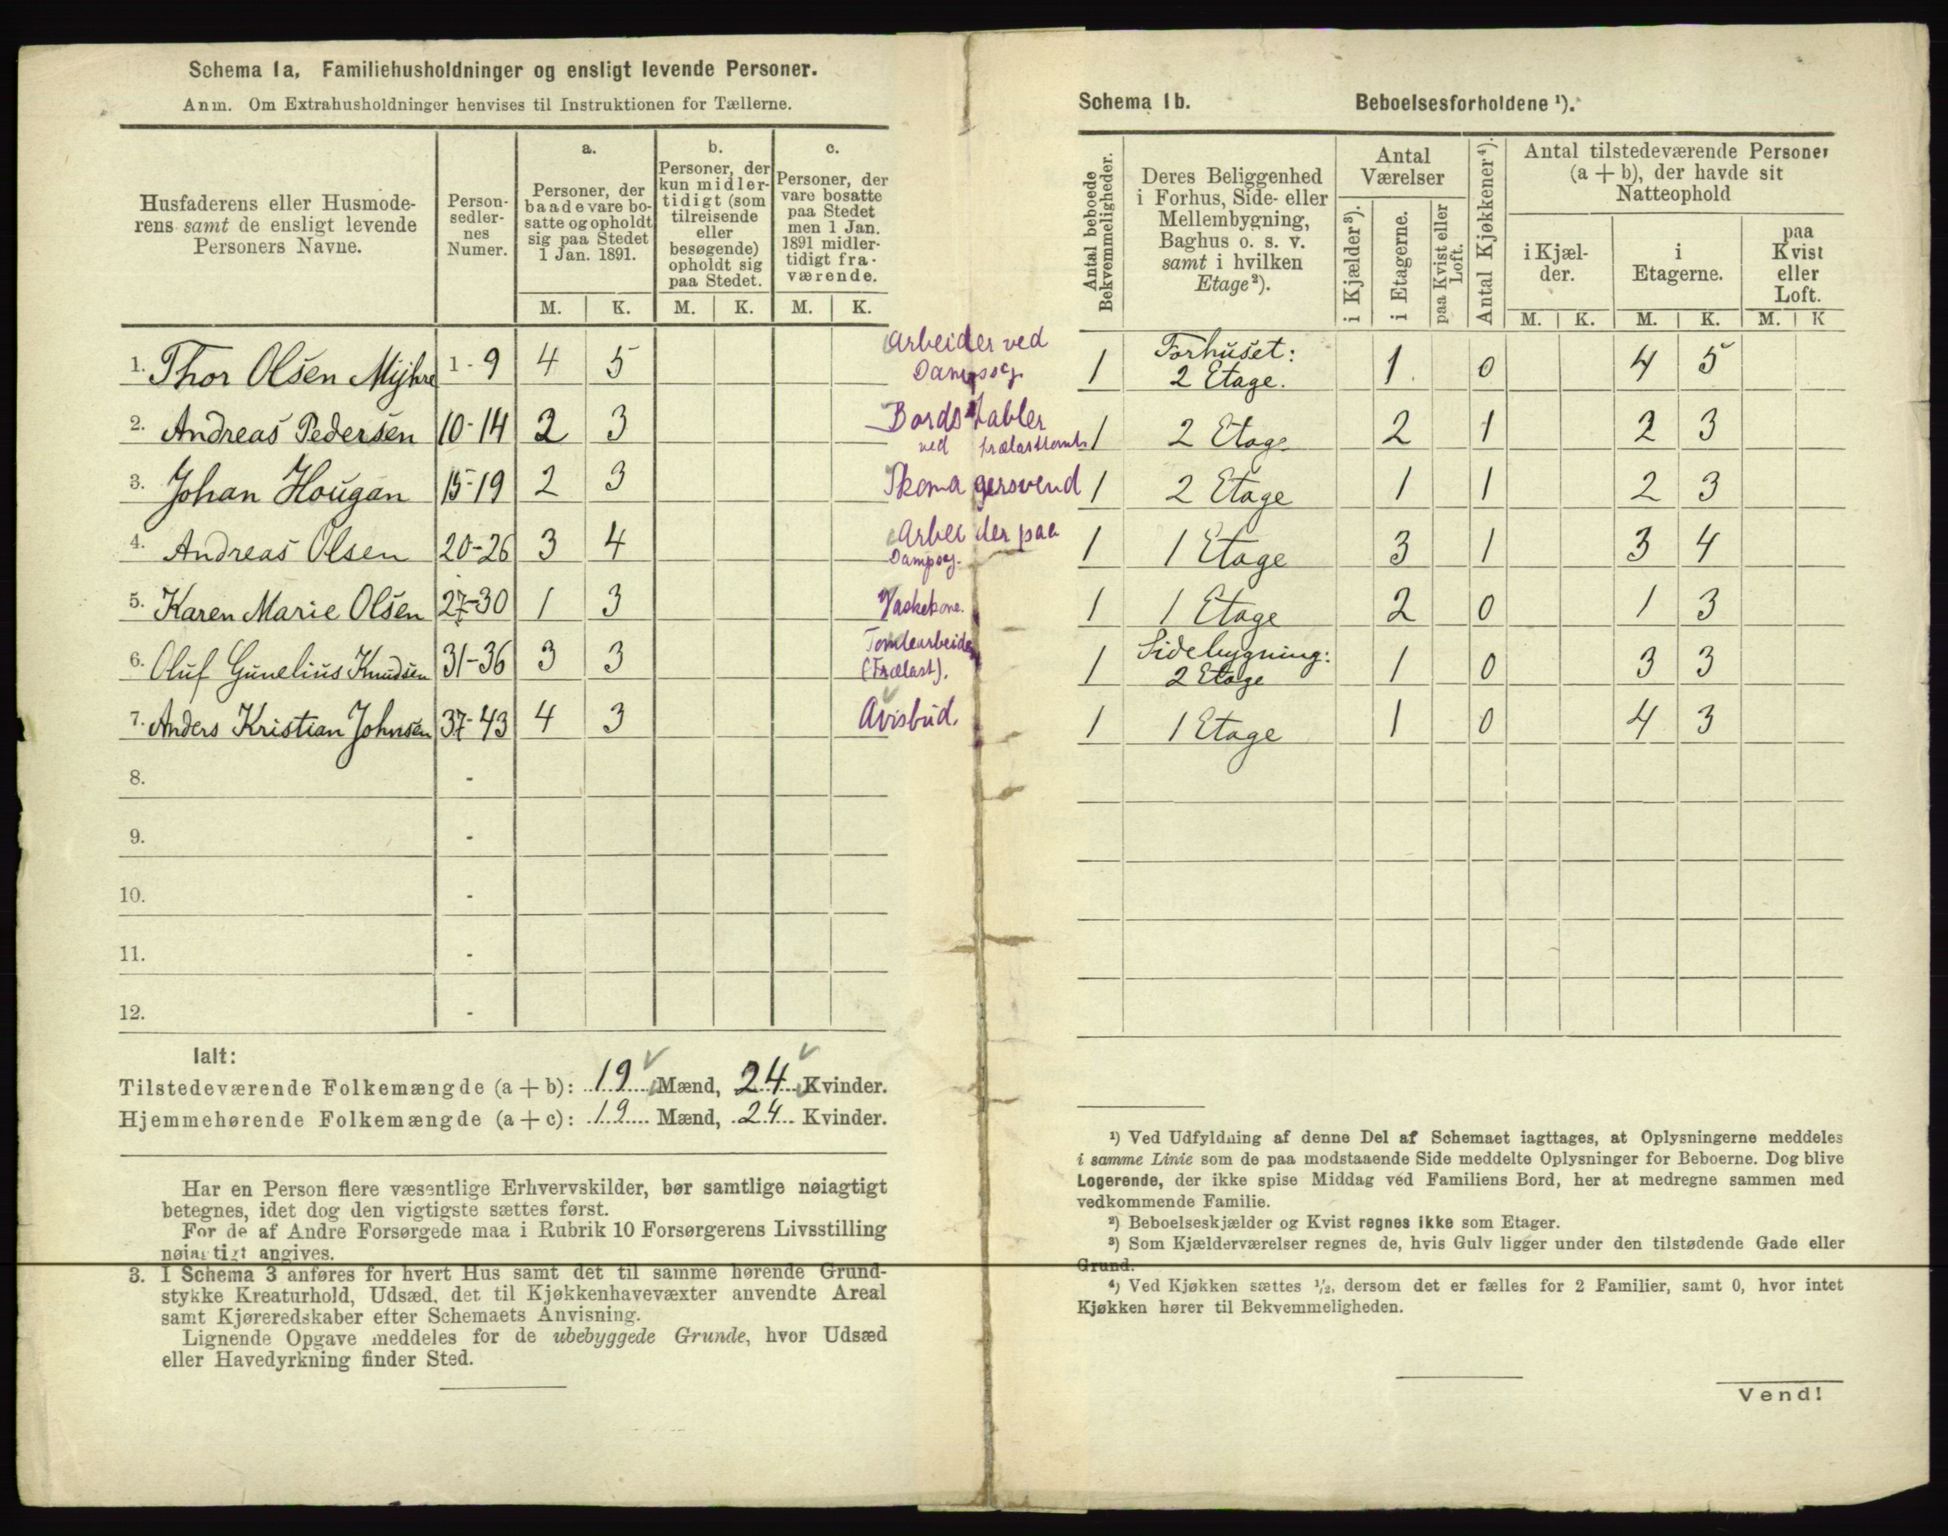 Schema 1a, Familiehusholdninger og ensligt levende Personer.
Anm. Om Extrahusholdninger henvises til Instruktionen for Tællerne.
Husfaderens eller Husmode-
rens samt de ensligt levende
Personers Navne.
Person-
sedler-
nes
Numer.
a.
Personer, der
baade vare bo-
satte og opholdt
sig paa Stedet
1 Jan. 1891.
b.
Personer, der
kun midler-
tidigt (som
tilreisende
eller
besøgende)
opholdt sig
paa Stedet.
c.
Personer, der
vare bosatte
paa Stedet
men 1 Jan.
1891 midler-
tidigt fra-
værende.
M. K. M. K. M. K.
1. Thor Olsen Myhre 1-9 4 5 Arbeider ved
Dampsag.
2. Andreas Pedersen 10-14 2 3 Bordstabler
ved
3. Johan Hougan 15-19 2 3 Skomagersvend
4. Andreas Olsen 20-26 3 4 Arbeider paa
Dampsag.
5. Karen Marie Olsen 27-30 1 3 Vaskekone.
6. Oluf Gunelius Knudsen 31-36 3 3 Tomtearbeider
(Trælast).
7. Anders Kristian Johnsen 37-43 4 3 Avisbud.
8. -
9. -
10. -
11. -
12. -
Ialt:
Tilstedeværende Folkemængde (a + b): 19 Mænd, 24 Kvinder.
Hjemmehørende Folkemængde (a + c): 19 Mænd, 24 Kvinder.
Har en Person flere væsentlige Erhvervskilder, bør samtlige nøiagtigt
betegnes, idet dog den vigtigste sættes først.
For de af Andre Forsørgede maa i Rubrik 10 Forsørgerens Livsstilling
nøiagtigt angives.
3. I Schema 3 anføres for hvert Hus samt det til samme hørende Grund-
stykke Kreaturhold, Udsæd, det til Kjøkkenhavevæxter anvendte Areal
samt Kjøreredskaber efter Schemaets Anvisning.
Lignende Opgave meddeles for de ubebyggede Grunde, hvor Udsæd
eller Havedyrkning finder Sted.
Schema 1b. Beboelsesforholdene ¹).
Antal beboede
Bekvemmeligheder.
Deres Beliggenhed
i Forhus, Side- eller
Mellembygning,
Baghus o. s. v.
samt i hvilken
Etage ²).
Antal
Værelser
i Kjælder ³).
i Etagerne.
paa Kvist eller
Loft.
Antal Kjøkkener ⁴).
Antal tilstedeværende Personer
(a + b), der havde sit
Natteophold
i Kjæl-
der.
i
Etagerne.
paa
Kvist
eller
Loft.
M. K. M. K. M. K
1 Forhuset:
2 Etage. 1 0 4 5
1 2 Etage 2 1 2 3
1 2 Etage 1 1 2 3
1 1 Etage 3 1 3 4
1 1 Etage 2 0 1 3
1 Sidebygning:
2 Etage 1 0 3 3
1 1 Etage 1 0 4 3
¹) Ved Udfyldning af denne Del af Schemaet iagttages, at Oplysningerne meddeles
i samme Linie som de paa modstaaende Side meddelte Oplysninger for Beboerne. Dog blive
Logerende, der ikke spise Middag ved Familiens Bord, her at medregne sammen med
vedkommende Familie.
²) Beboelseskjælder og Kvist regnes ikke som Etager.
³) Som Kjælderværelser regnes de, hvis Gulv ligger under den tilstødende Gade eller
Grund.
⁴) Ved Kjøkken sættes ¹/₂, dersom det er fælles for 2 Familier, samt 0, hvor intet
Kjøkken hører til Bekvemmeligheden.
Vend!